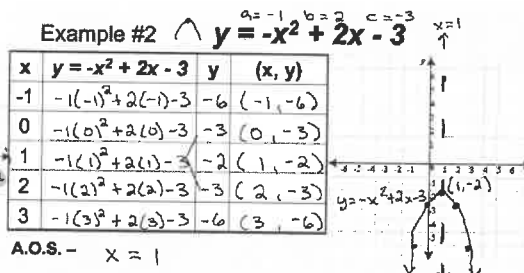 a=-1 b=2 c=-3
x=1
Example #2 y = -x² + 2x - 3
x y = -x² + 2x - 3 y (x, y)
-1 -1(-1)²+2(-1)-3 -6 (-1,-6)
0 -1(0)²+2(0)-3 -3 (0,-3)
1 -1(1)²+2(1)-3 -2 (1,-2)
2 -1(2)²+2(2)-3 -3 (2,-3)
3 -1(3)²+2(3)-3 -6 (3,-6)
-6 -5 -4 -3 -2 -1 1 2 3 4 5 6
(1,-2)
y=-x²+2x-3
A.O.S. – x = 1